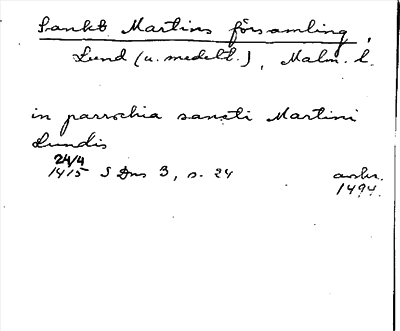 Sankt Martins församling,
Lund (u. medelt.), Malm. l.
in parrochia sancti Martini
Lundis
24/4
1415 S Dns 3, s. 24 avskr.
1494.